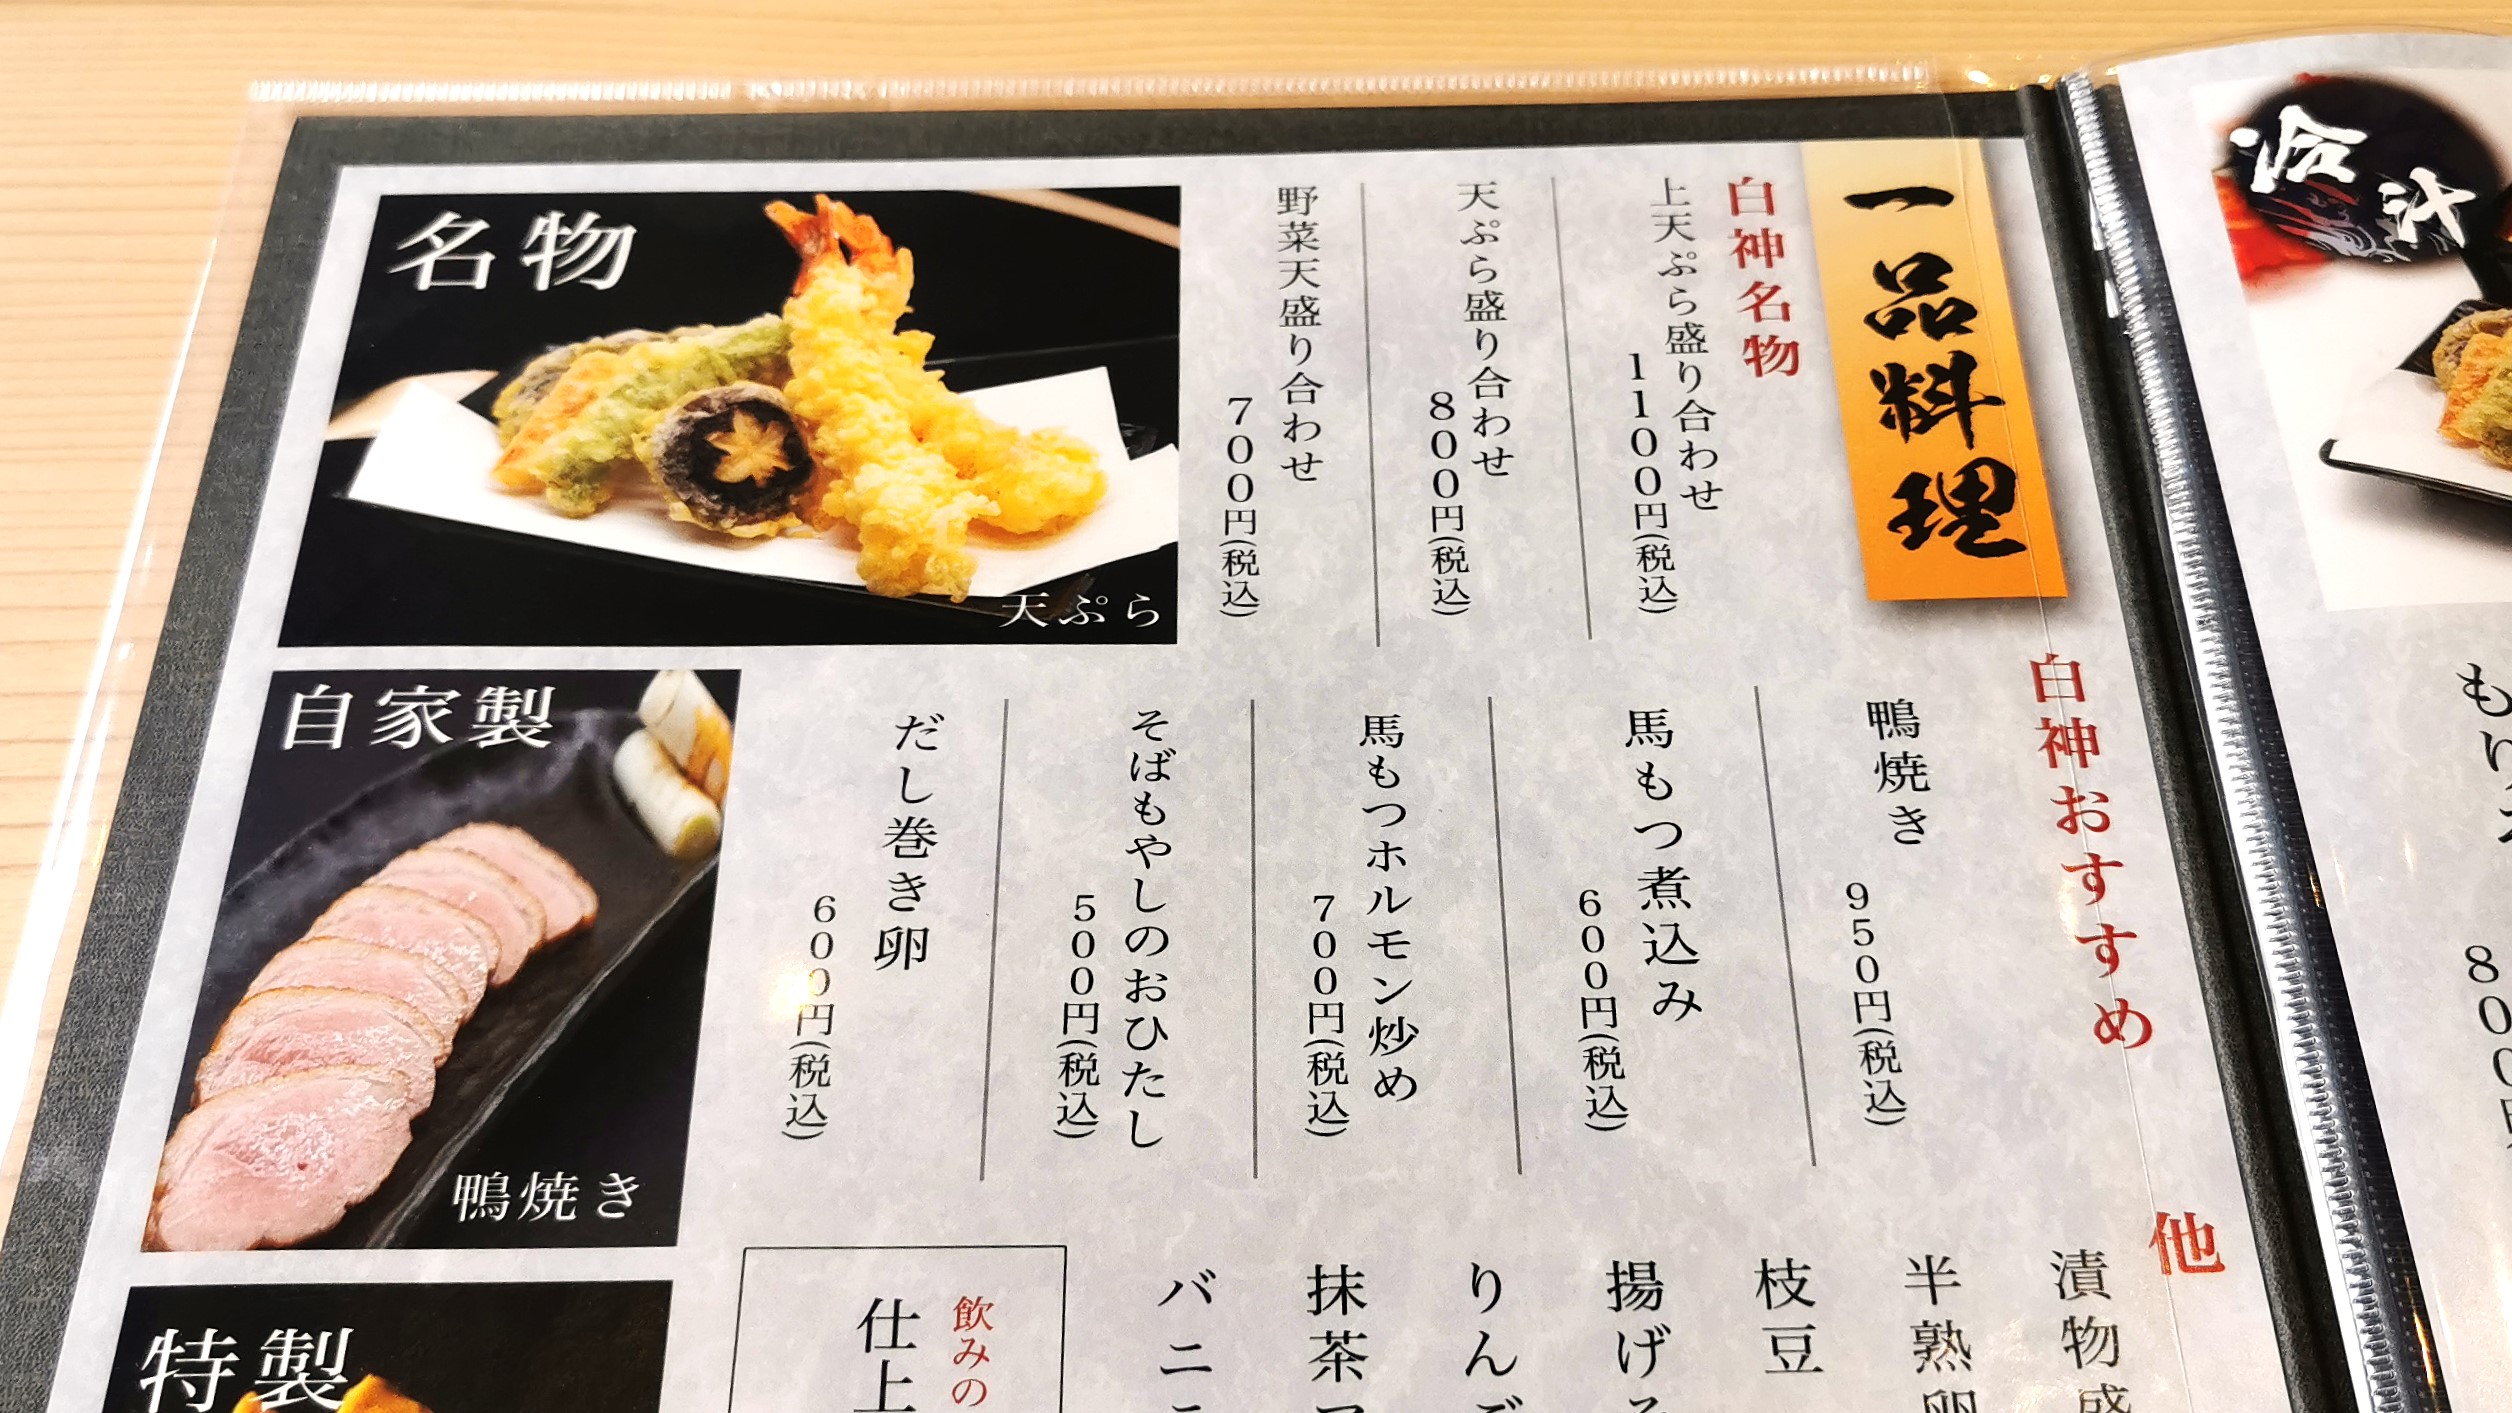 一品料理
白神名物
上天ぷら盛り合わせ
1100円(税込)
天ぷら盛り合わせ
800円(税込)
野菜天盛り合わせ
700円(税込)
名物
天ぷら
白神おすすめ
鴨焼き
950円(税込)
馬もつ煮込み
600円(税込)
馬もつホルモン炒め
700円(税込)
そばもやしのおひたし
500円(税込)
だし巻き卵
600円(税込)
自家製
鴨焼き
他
漬物盛
半熟卵
枝豆
揚げそ
りんご
抹茶ア
バニラ
飲みの
仕上
特製
冷汁
もり
80